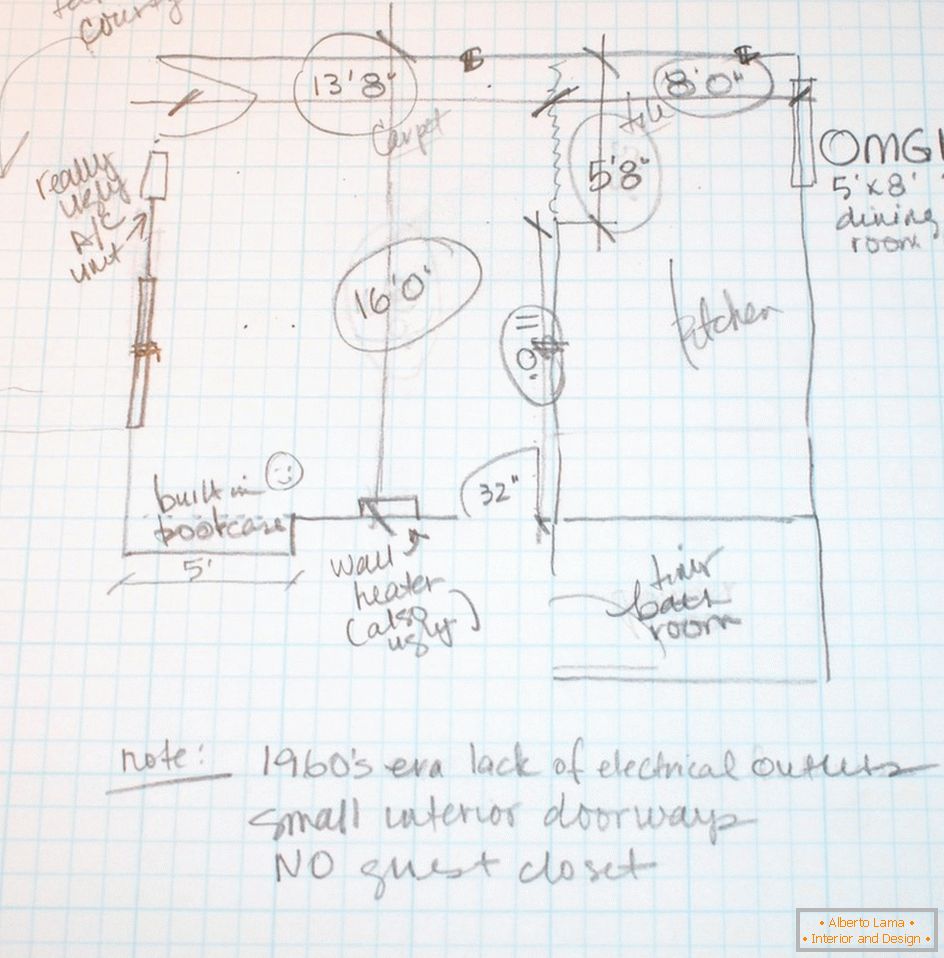 county
13'8"
8'0"
carpet
tile
OMG!
5'x8'
dining
room
5'8"
really
ugly
A/C
unit
16'0"
kitchen
32"
built-in
bookcase
5'
wall
heater
(also
ugly)
tiny
bath
room
note: 1960's era lack of electrical outlets
small interior doorways
NO guest closet
• Alberto Lama •
• Interior and Design •